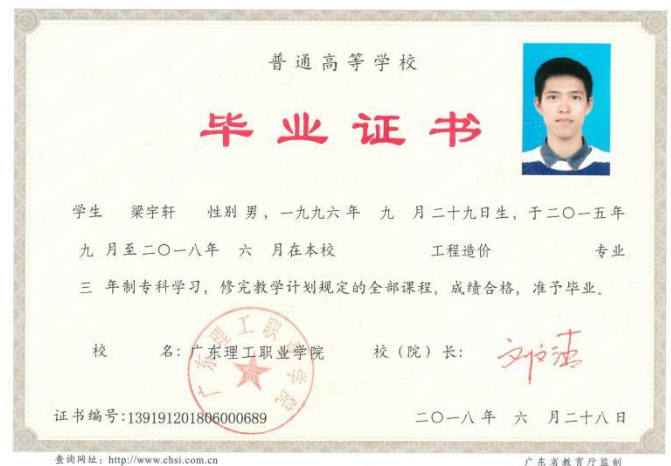 普通高等学校
毕业证书
学生 梁宇轩 性别 男，一九九六年 九 月二十九日生，于二〇一五年
九 月至二〇一八年 六 月在本校 工程造价 专业
三 年制专科学习，修完教学计划规定的全部课程，成绩合格，准予毕业。
校 名：广东理工职业学院 校（院）长：
广东理工职业学院
证书编号:139191201806000689 二〇一八 年 六 月二十八日
查询网址：http://www.chsi.com.cn 广东省教育厅监制